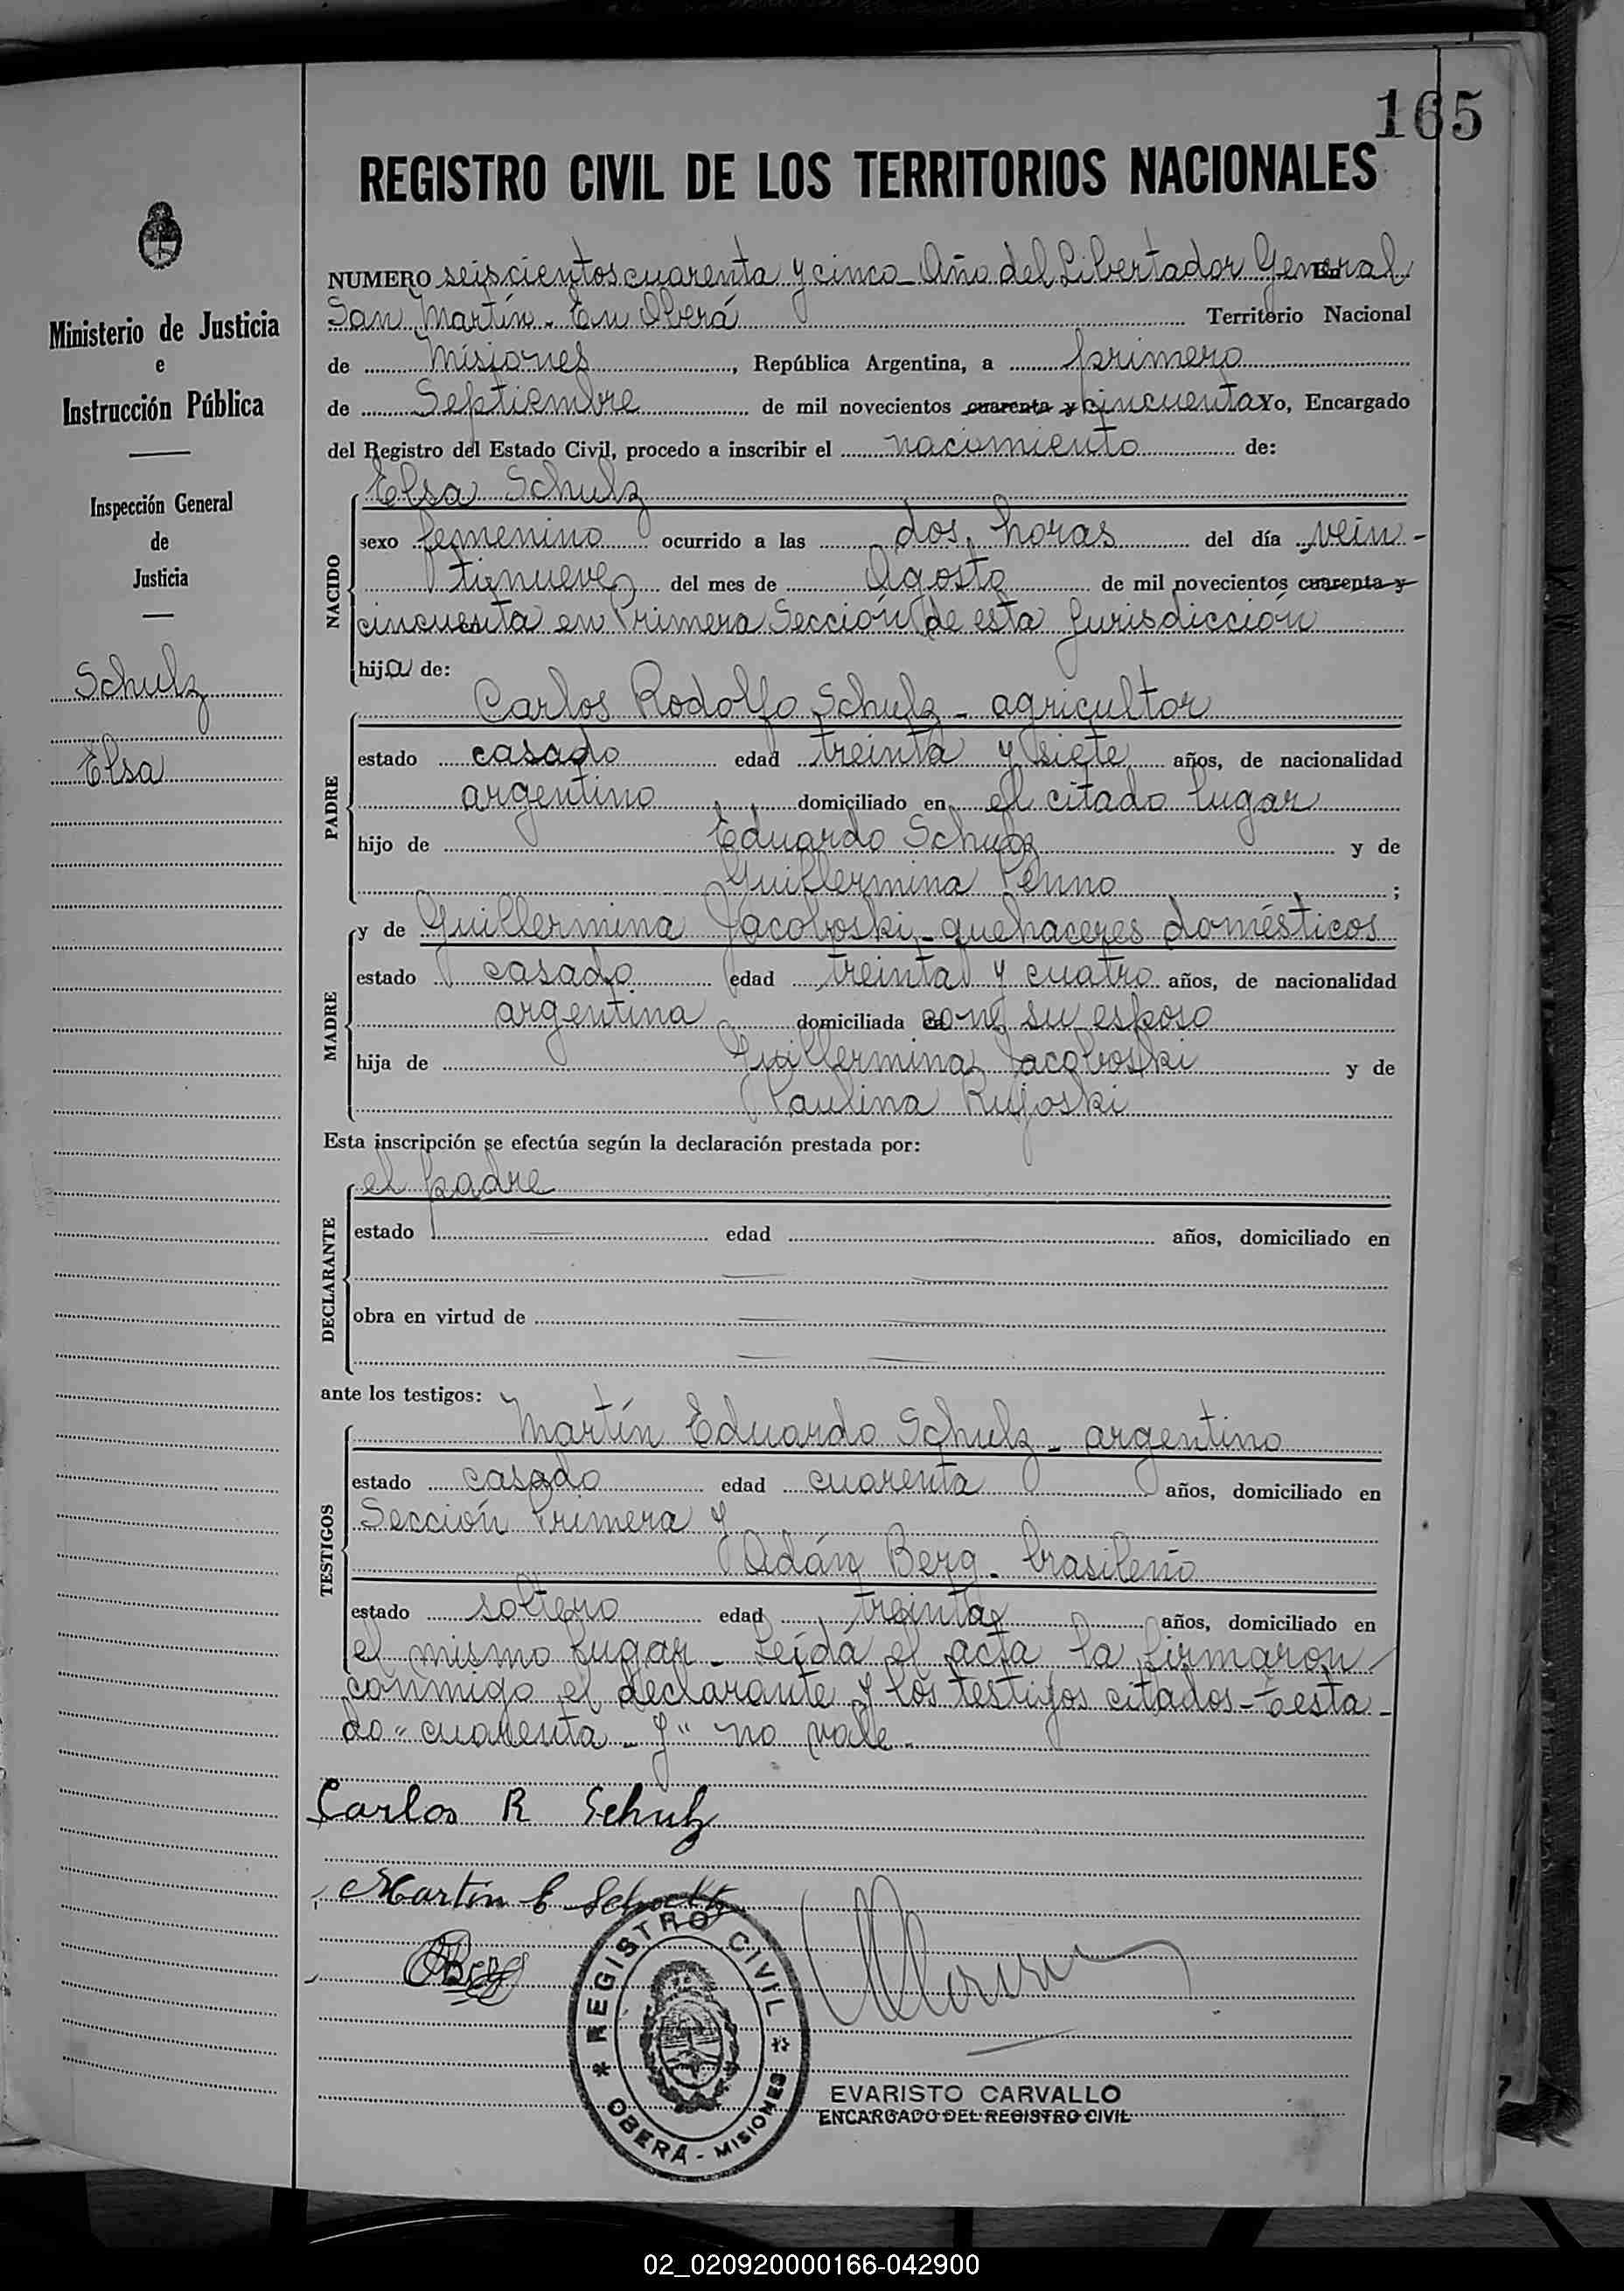 165
REGISTRO CIVIL DE LOS TERRITORIOS NACIONALES
Ministerio de Justicia
e
Instrucción Pública
Inspección General
de
Justicia
Schulz
Elsa
NUMERO seiscientos cuarenta y cinco - Año del Libertador General
San Martín. En Oberá Territorio Nacional
de Misiones, República Argentina, a primero
de Septiembre de mil novecientos cuarenta y cincuenta Yo, Encargado
del Registro del Estado Civil, procedo a inscribir el nacimiento de:
NACIDO
Elsa Schulz
sexo femenino ocurrido a las dos horas del día vein-
tinueve del mes de Agosto de mil novecientos cuarenta y
cincuenta en Primera Sección de esta Jurisdicción
hija de:
PADRE
Carlos Rodolfo Schulz - agricultor
estado casado edad treinta y siete años, de nacionalidad
argentino domiciliado en el citado lugar
hijo de Eduardo Schulz y de
Guillermina Penno ;
MADRE
y de Guillermina Jacoboski - quehaceres domésticos
estado casado edad treinta y cuatro años, de nacionalidad
argentina domiciliada con su esposo
hija de Guillermina Jacoboski y de
Paulina Rujoski
Esta inscripción se efectúa según la declaración prestada por:
DECLARANTE
el padre
estado edad años, domiciliado en
obra en virtud de
ante los testigos:
TESTIGOS
Martín Eduardo Schulz - argentino
estado casado edad cuarenta años, domiciliado en
Sección Primera y
Adán Berg - brasileño
estado soltero edad treinta años, domiciliado en
el mismo lugar - Leída el acta la firmaron
conmigo el declarante y los testigos citados - Testa-
do "cuarenta - y" no vale.
Carlos R Schulz
Martin E Schultz
Berg
REGISTRO CIVIL
OBERÁ - MISIONES
EVARISTO CARVALLO
ENCARGADO DEL REGISTRO CIVIL
02_020920000166-042900